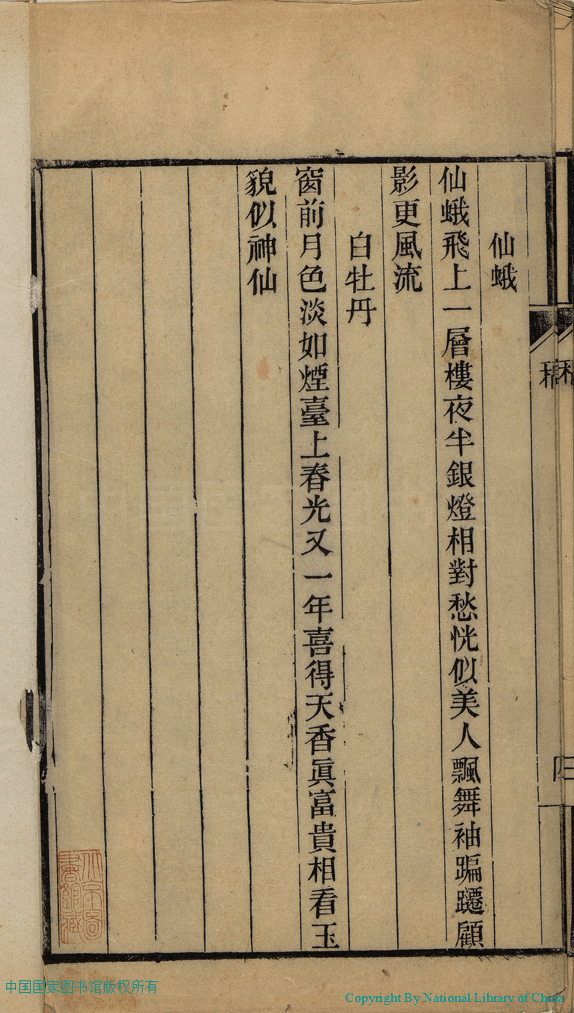 仙蛾
仙蛾飛上一層樓夜半銀燈相對愁恍似美人飄舞袖蹁躚顧
影更風流
白牡丹
窗前月色淡如煙臺上春光又一年喜得天香眞富貴相看玉
貌似神仙
中国国家图书馆版权所有
Copyright By National Library of China